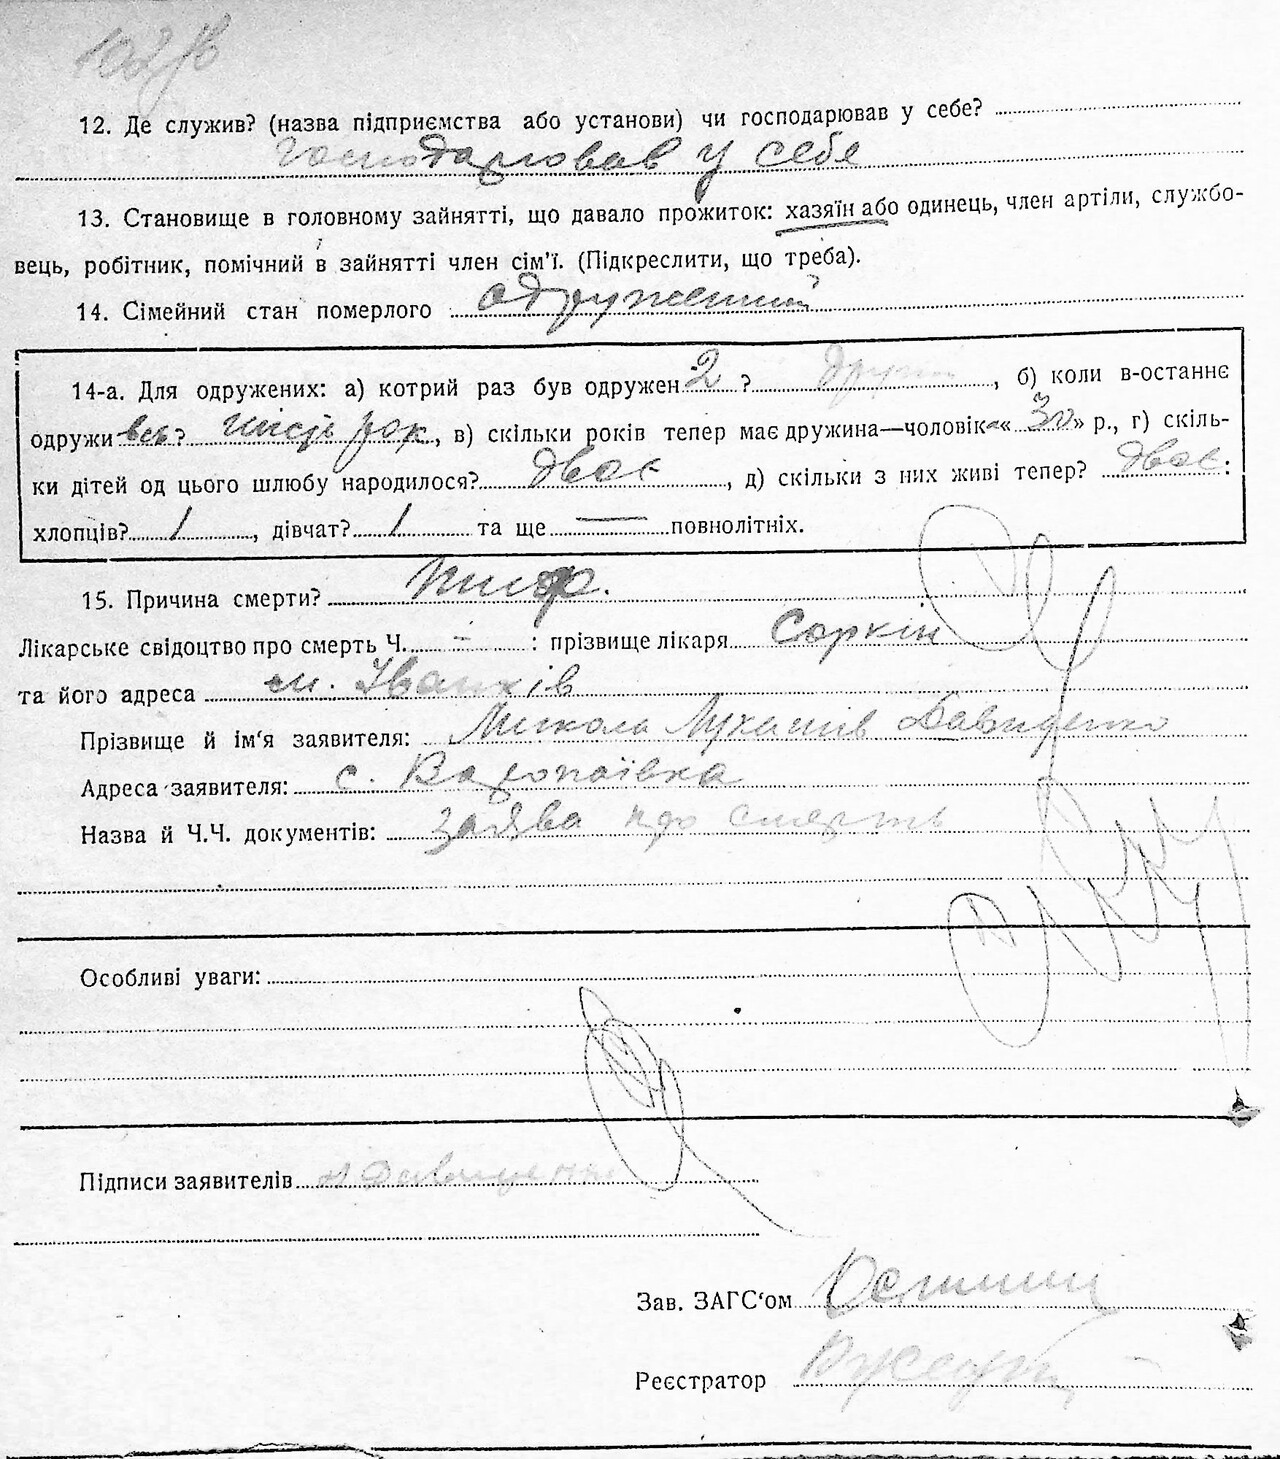 12. Де служив? (назва підприємства або установи) чи господарював у себе?
господарював у себе
13. Становище в головному зайнятті, що давало прожиток: хазяїн або одинець, член артіли, службо-
вець, робітник, помічний в зайнятті член сім'ї. (Підкреслити, що треба).
14. Сімейний стан померлого одружений
14-а. Для одружених: а) котрий раз був одружен 2 ? другий, б) коли в-останнє
одружи всь? шість рок, в) скільки років тепер має дружина—чоловік «30» р., г) скіль-
ки дітей од цього шлюбу народилося? двоє, д) скільки з них живі тепер? двоє:
хлопців? 1, дівчат? 1 та ще — повнолітніх.
15. Причина смерти?
Лікарське свідоцтво про смерть Ч. – : прізвище лікаря Соркін
та його адреса м. Іванків
Прізвище й ім'я заявителя: Микола Лукашів Давиденко
Адреса заявителя: с. Варопаївка
Назва й Ч.Ч. документів: заява про смерть
Особливі уваги:
Підписи заявителів Давиденко
Зав. ЗАГС'ом
Реєстратор